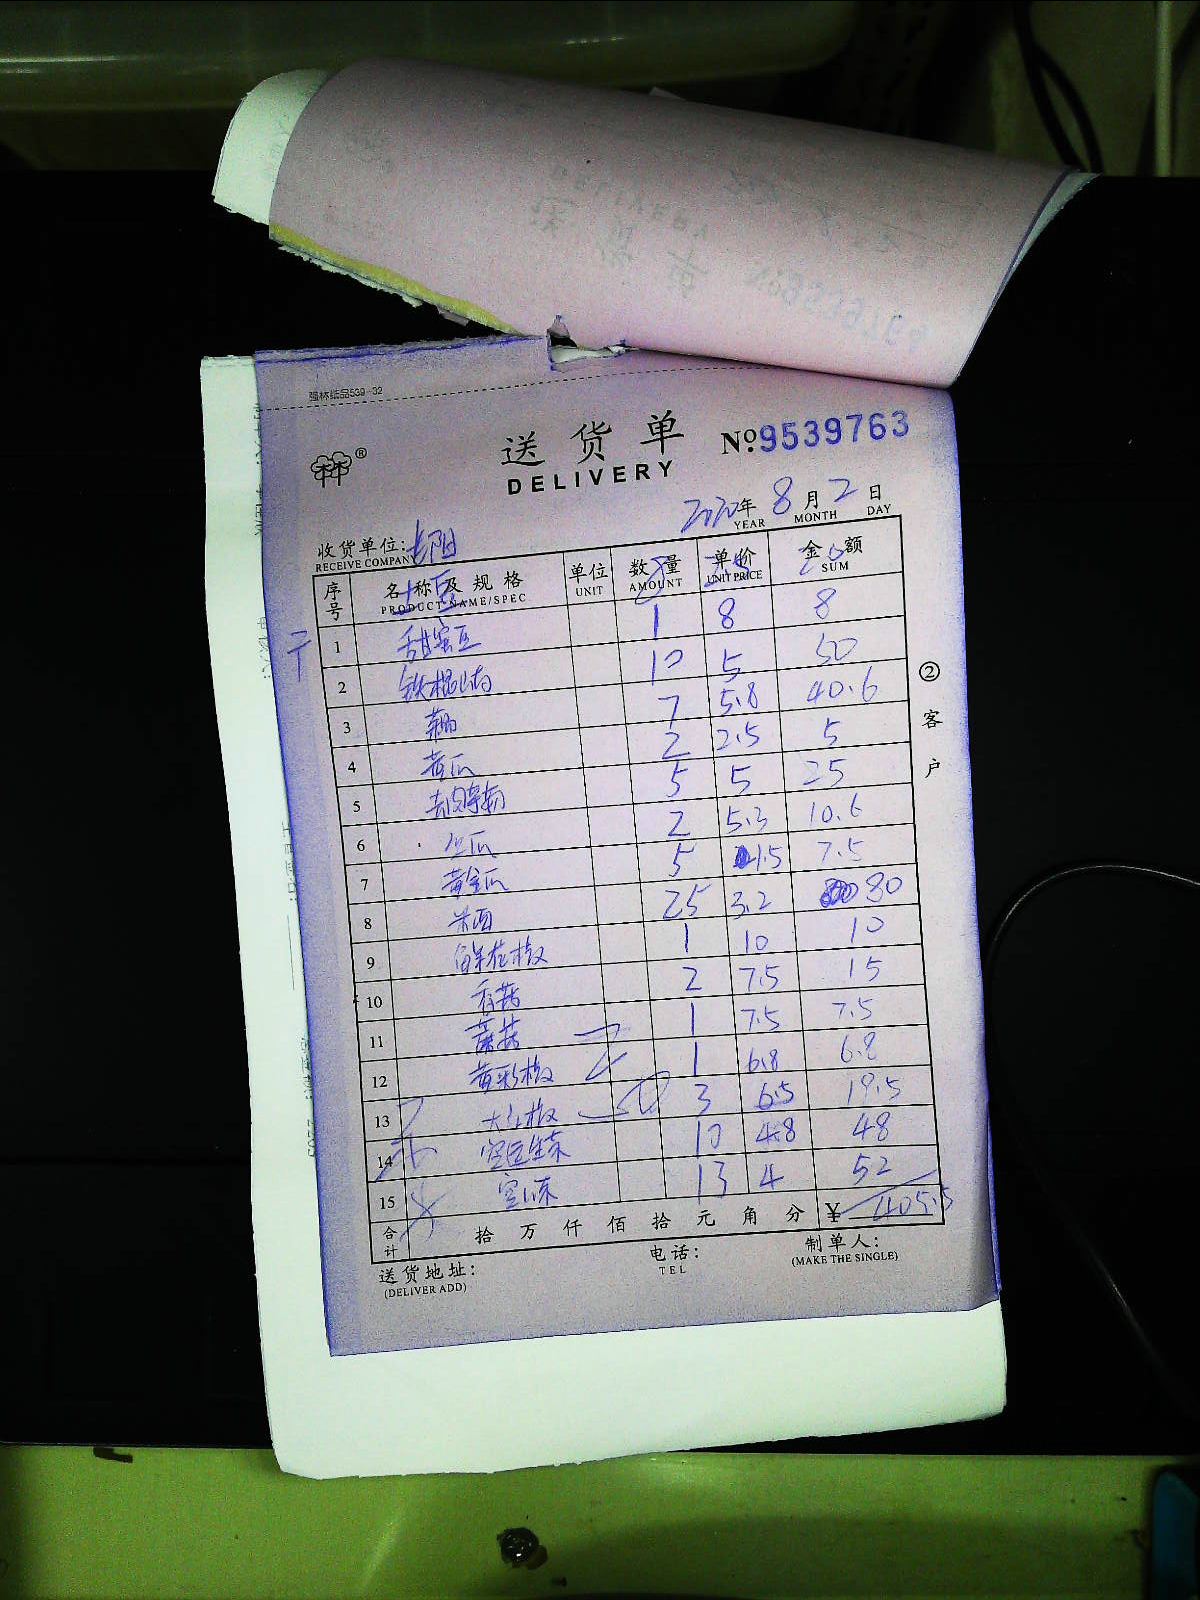 强林纸品539-32
送货单
DELIVERY
№9539763
2020年8月2日
YEAR MONTH DAY
收货单位:长阳
RECEIVE COMPANY
序号 名称及规格 单位 数量 单价 金额
PRODUCT NAME/SPEC UNIT AMOUNT UNIT PRICE SUM
土豆 8 2.5 20
1 甜蜜豆 1 8 8
2 铁棍山药 10 5 50
3 7 5.8 40.6
4 黄瓜 2 2.5 5
5 去皮莴 5 5 25
6 瓜 2 5.3 10.6
7 黄金瓜 5 1.5 7.5
8 25 3.2 80
9 鲜花椒 1 10 10
10 香菇 2 7.5 15
11 蘑菇 1 7.5 7.5
12 黄彩椒 1 6.8 6.8
13 大红椒 3 6.5 19.5
14 空运生菜 10 4.8 48
15 空心菜 13 4 52
合计 拾 万 仟 佰 拾 元 角 分 ¥ 405.5
送货地址: 电话: 制单人:
(DELIVER ADD) TEL (MAKE THE SINGLE)
②客户